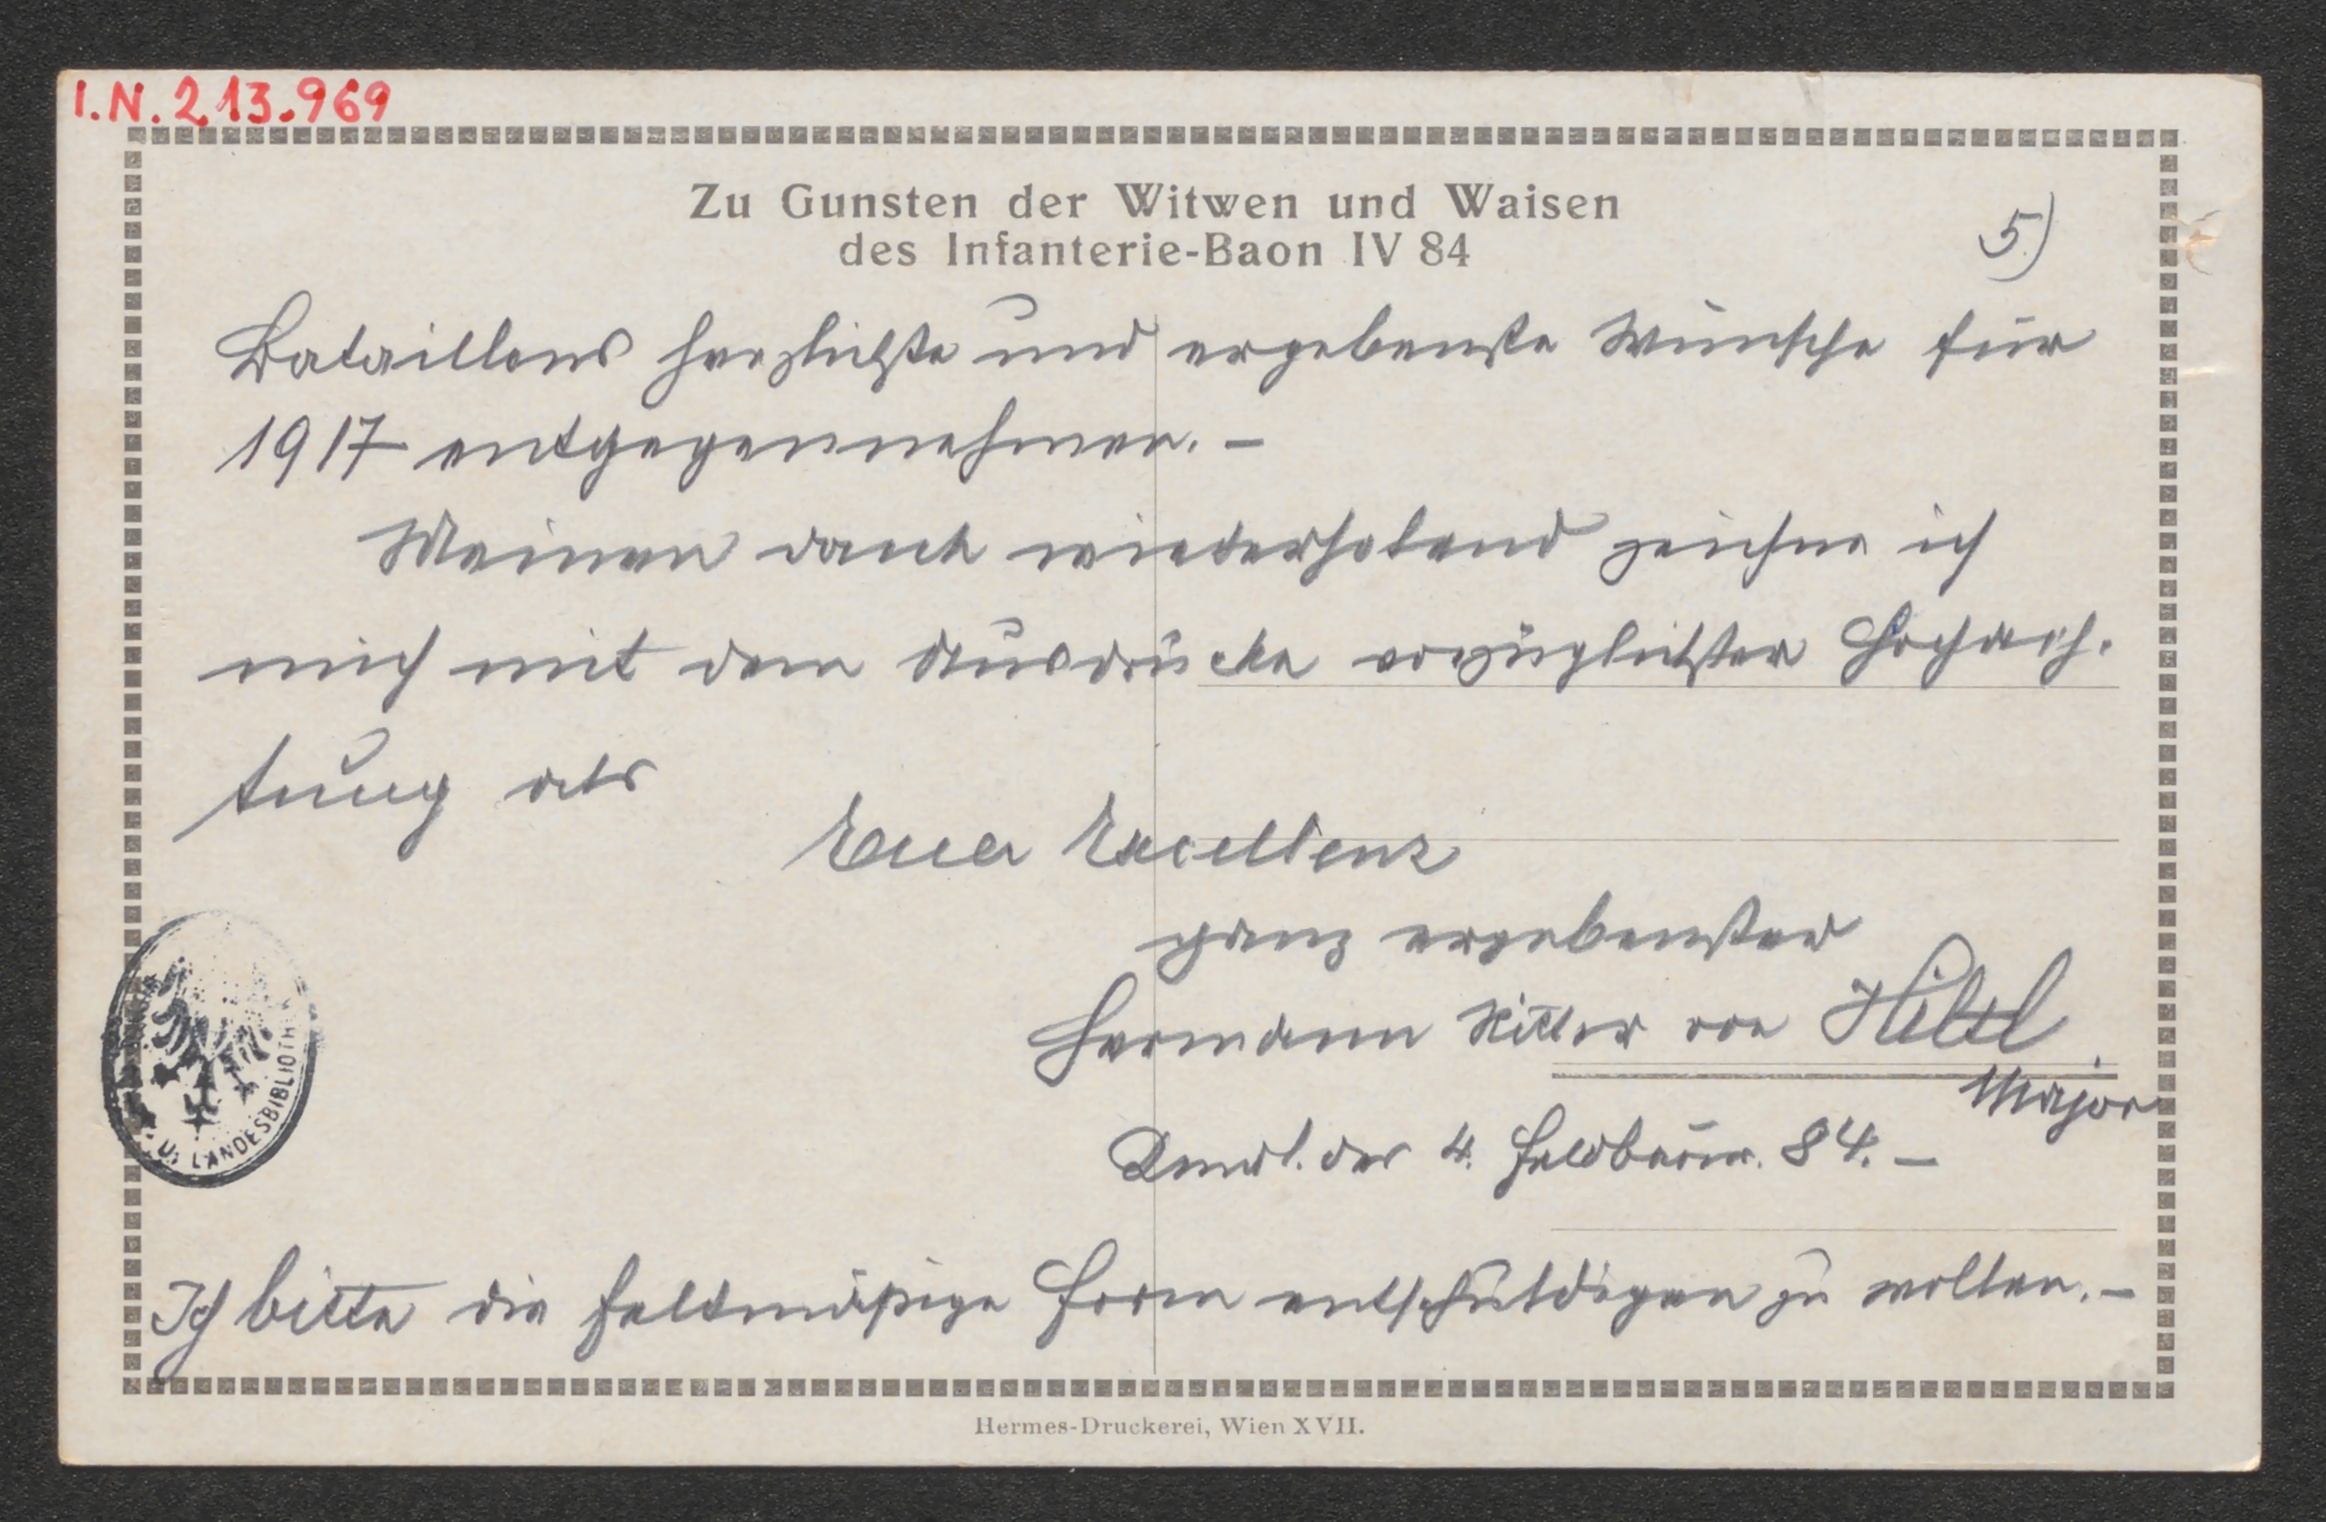 I.N. 213.969
Zu Gunsten der Witwen und Waisen
des Infanterie-Baon IV 84
5.)
Bataillons herzlichste und ergebenste Wünsche für
1917 entgegennehmen. –
Meinen Dank wiederholend zeichne ich
mich mit dem Ausdrucke vorzüglichster Hochach-
tung als
Euer Excellenz
ganz ergebenster
Hermann Ritter von Hiltl.
Major
Kmdt. des 4. Feldbaons. 84. –
Ich bitte die feldmäßige Form entschuldigen zu wollen. –
U. LANDESBIBLIOTH
Hermes-Druckerei, Wien XVII.